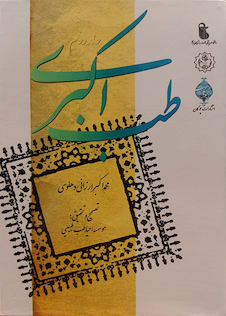 جلد دوم
طب اکبری
محمد اکبر ارزانی دهلوی
تصحیح و تحقیق:
موسسه احیاء طب طبیعی